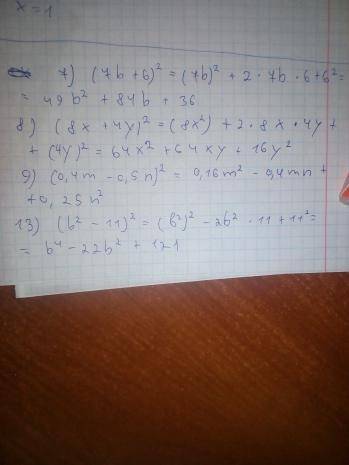 x = 1
7) (7b + 6)² = (7b)² + 2 · 7b · 6 + 6² =
= 49b² + 84b + 36
8) (8x + 4y)² = (8x²) + 2 · 8x · 4y +
+ (4y)² = 64x² + 64xy + 16y²
9) (0,4m - 0,5n)² = 0,16m² - 0,4mn +
+0,25n²
13) (b² - 11)² = (b²)² - 2b² · 11 + 11² =
= b⁴ - 22b² + 121